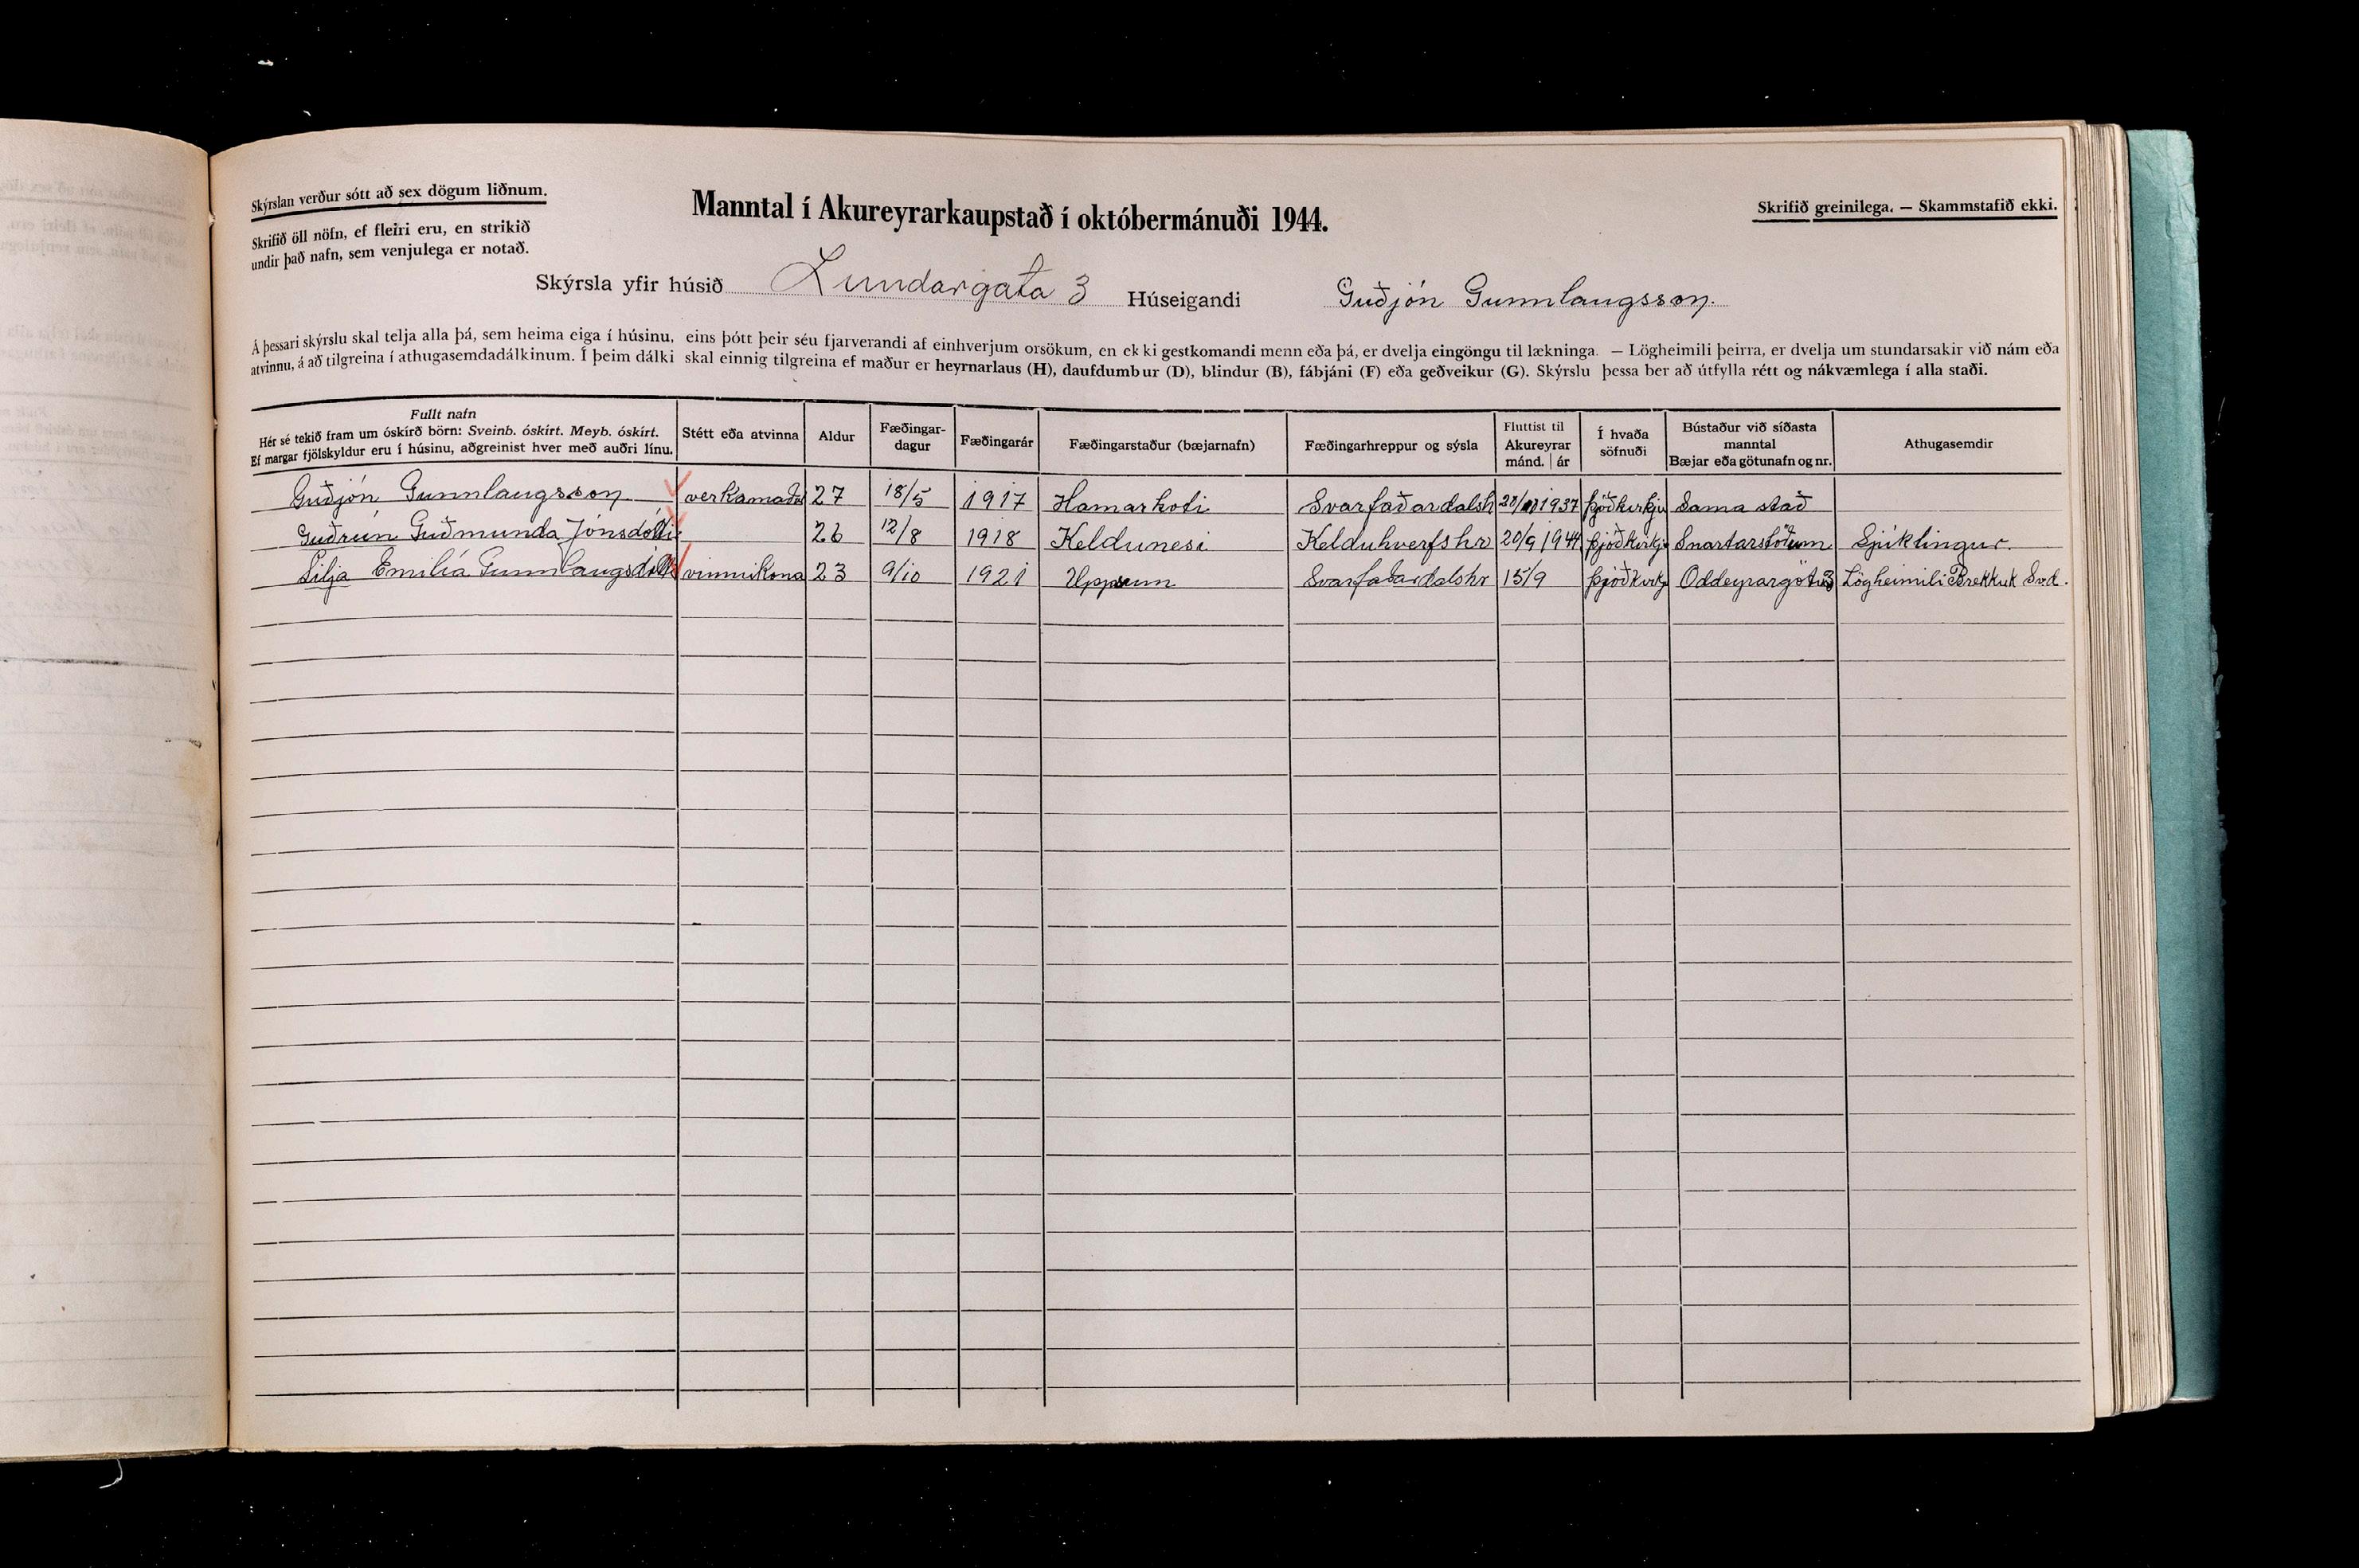 Skýrslan verður sótt að sex dögum liðnum.
Skrifið öll nöfn, ef fleiri eru, en strikið
undir það nafn, sem venjulega er notað.
Manntal í Akureyrarkaupstað í októbermánuði 1944.
Skrifið greinilega. — Skammstafið ekki.
Skýrsla yfir húsið Lundargata 3 Húseigandi Guðjón Gunnlaugsson.
Á þessari skýrslu skal telja alla þá, sem heima eiga í húsinu, eins þótt þeir séu fjarverandi af einhverjum orsökum, en ekki gestkomandi menn eða þá, er dvelja eingöngu til lækninga. — Lögheimili þeirra, er dvelja um stundarsakir við nám eða
atvinnu, á að tilgreina í athugasemdadálkinum. Í þeim dálki skal einnig tilgreina ef maður er heyrnarlaus (H), daufdumbur (D), blindur (B), fábjáni (F) eða geðveikur (G). Skýrslu þessa ber að útfylla rétt og nákvæmlega í alla staði.
Fullt nafn
Hér sé tekið fram um óskírð börn: Sveinb. óskírt. Meyb. óskírt.
Ef margar fjölskyldur eru í húsinu, aðgreinist hver með auðri línu.
Stétt eða atvinna
Aldur
Fæðingar-
dagur
Fæðingarár
Fæðingarstaður (bæjarnafn)
Fæðingarhreppur og sýsla
Fluttist til
Akureyrar
mánd. | ár
Í hvaða
söfnuði
Bústaður við síðasta
manntal
Bæjar eða götunafn og nr.
Athugasemdir
Guðjón Gunnlaugsson verkamaður 27 18/5 1917 Hamarkoti Svarfaðardalsh 1937 þjóðkirkju Sama stað
Guðrún Guðmunda Jónsdóttir 26 12/8 1918 Keldunesi Kelduhverfshr 20/9 1944 þjóðkirkju Snartarstöðum Sjúklingur.
Lilja Emilía Gunnlaugsdóttir vinnukona 23 9/10 1921 Uppsum Svarfaðardalshr 15/9 þjóðkirkj Oddeyrargötu 3 Lögheimili Brekkuk Svd.